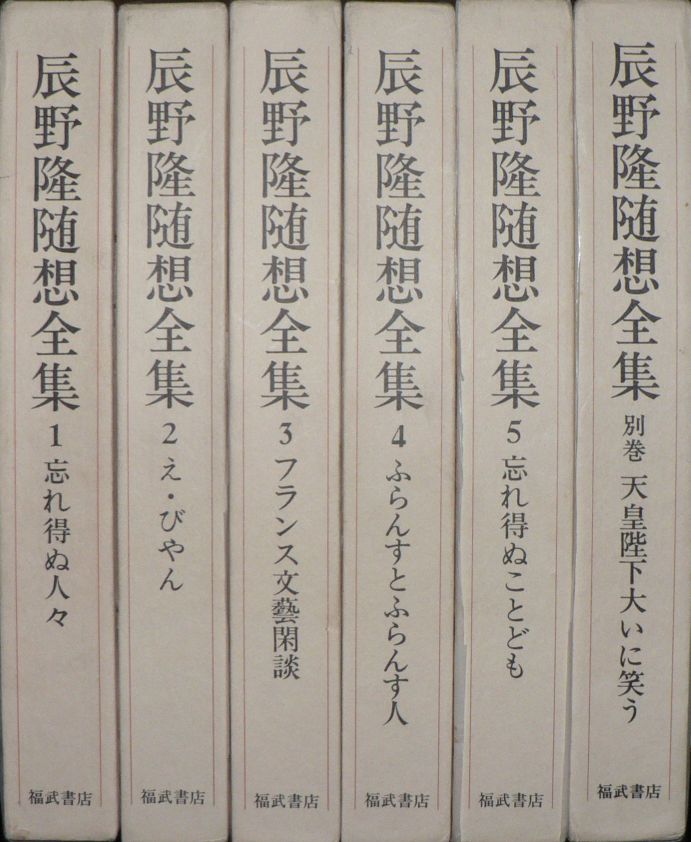 辰野隆随想全集 1 忘れ得ぬ人々
福武書店
辰野隆随想全集 2 え・びやん
福武書店
辰野隆随想全集 3 フランス文藝閑談
福武書店
辰野隆随想全集 4 ふらんすとふらんす人
福武書店
辰野隆随想全集 5 忘れ得ぬことども
福武書店
辰野隆随想全集 別巻 天皇陛下大いに笑う
福武書店